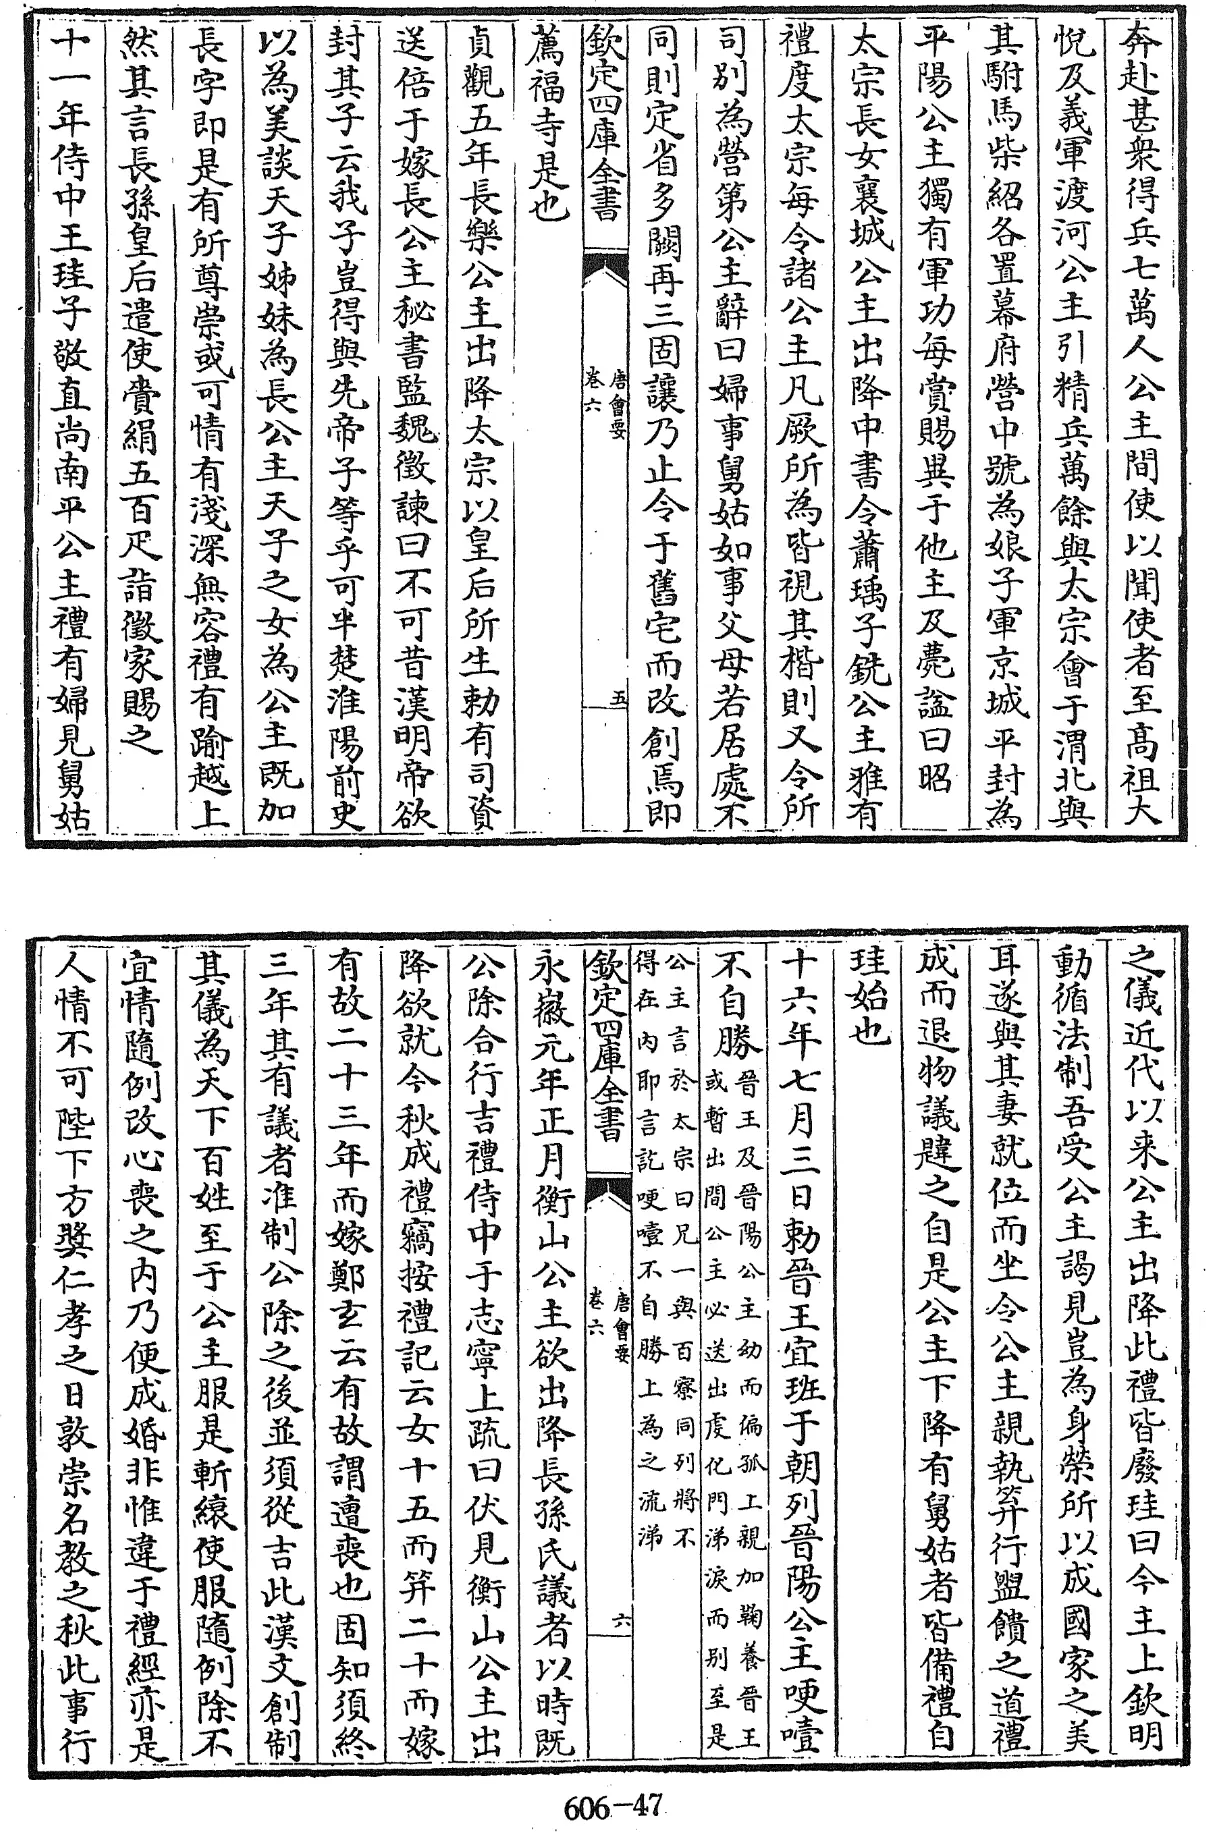 奔赴甚衆得兵七萬人公主間使以聞使者至髙祖大
悅及義軍渡河公主引精兵萬餘與太宗會于渭北與
其駙馬柴紹各置幕府營中號為娘子軍京城平封為
平陽公主獨有軍功每賞賜異于他主及薨諡曰昭
太宗長女襄城公主出降中書令蕭瑀子銳公主雅有
禮度太宗每令諸公主凡厥所為皆視其楷則又令所
司別為營第公主辭曰婦事舅姑如事父母若居處不
同則定省多闕再三固讓乃止令于舊宅而改創焉即
欽定四庫全書
唐會要
卷六
五
薦福寺是也
貞觀五年長樂公主出降太宗以皇后所生勅有司資
送倍于嫁長公主秘書監魏徵諫曰不可昔漢明帝欲
封其子云我子豈得與先帝子等乎可半楚淮陽前史
以為美談天子姊妹為長公主天子之女為公主既加
長字即是有所尊崇或可情有淺深無容禮有踰越上
然其言長孫皇后遣使賫絹五百疋詣徵家賜之
十一年侍中王珪子敬直尚南平公主禮有婦見舅姑
之儀近代以来公主出降此禮皆廢珪曰今主上欽明
動循法制吾受公主謁見豈為身榮所以成國家之美
耳遂與其妻就位而坐令公主親執笄行盥饋之道禮
成而退物議韙之自是公主下降有舅姑者皆備禮自
珪始也
十六年七月三日勅晉王宜班于朝列晉陽公主哽噎
不自勝
晉王及晉陽公主幼而偏孤上親加鞠養晉王
或暫出間公主必送出虔化門涕淚而别至是
公主言於太宗曰兄一與百寮同列將不
得在内耶言訖哽噎不自勝上為之流涕
欽定四庫全書
唐會要
卷六
六
永徽元年正月衡山公主欲出降長孫氏議者以時既
公除合行吉禮侍中于志寧上疏曰伏見衡山公主出
降欲就今秋成禮竊按禮記云女十五而笄二十而嫁
有故二十三年而嫁鄭玄云有故謂遭喪也固知須終
三年其有議者准制公除之後並須從吉此漢文創制
其儀為天下百姓至于公主服是斬縗使服隨例除不
宜情隨例改心喪之内乃便成婚非惟違于禮經亦是
人情不可陛下方奬仁孝之日敦崇名教之秋此事行
606-47